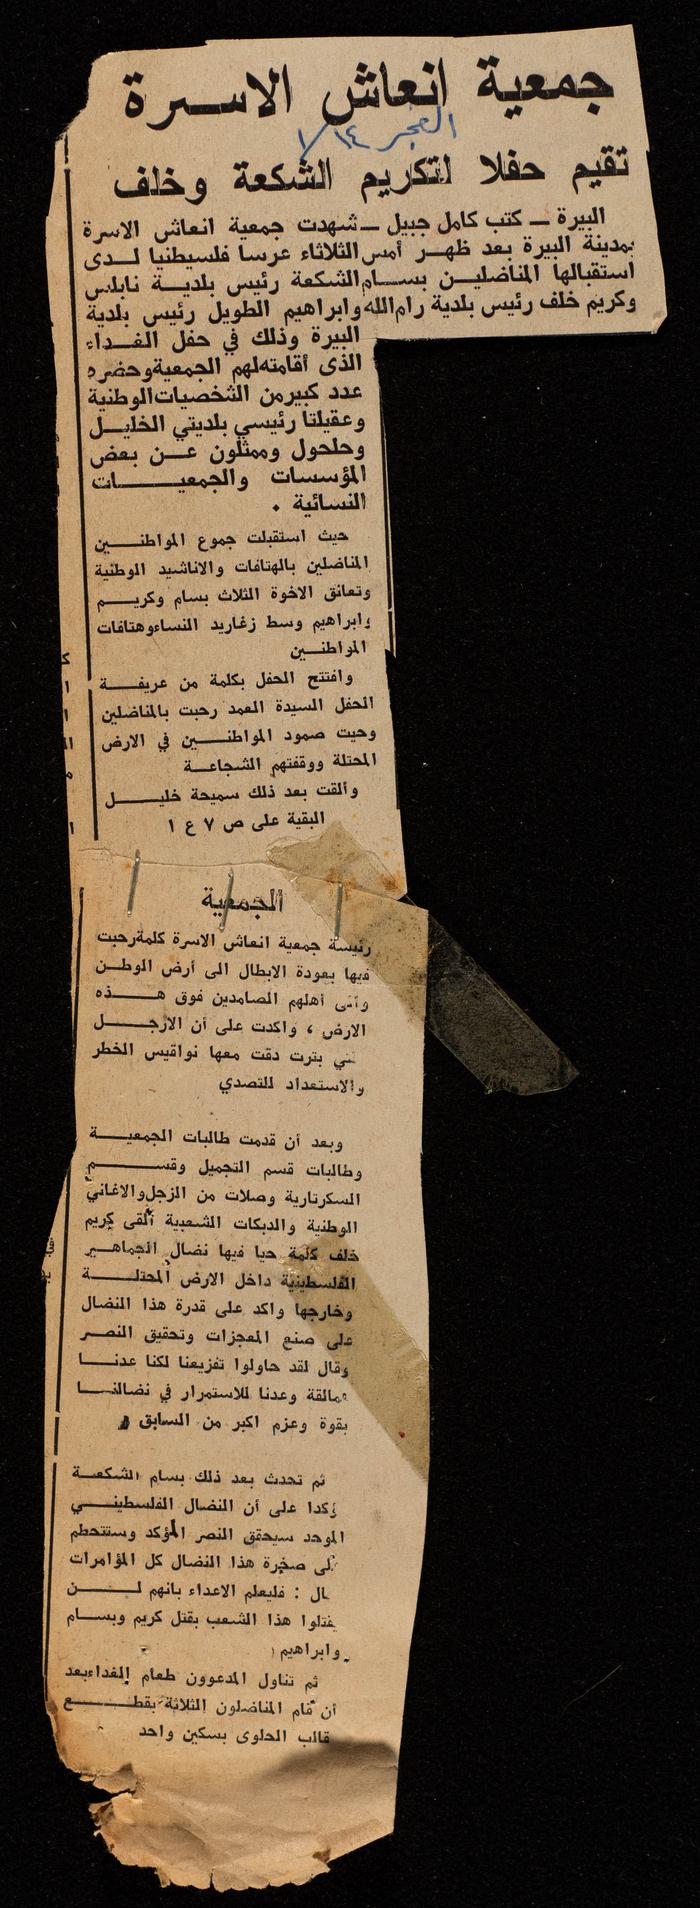 جمعية انعاش الاسرة
الفجر ١/١٤
تقيم حفلا لتكريم الشكعة وخلف
البيرة ــ كتب كامل جبيل ــ
بمدينة البيرة بعد ظهر أمس
استقبالها المناضلين بسام
وكريم خلف رئيس بلدية رام الله
شهدت جمعية انعاش الاسرة
الثلاثاء عرسا فلسطينيا لدى
الشكعة رئيس بلدية نابلس
وابراهيم الطويل رئيس بلدية
البيرة وذلك في حفل الغداء
الذى أقامته لهم الجمعية وحضره
عدد كبير من الشخصيات الوطنية
وعقيلتا رئيسي بلديتي الخليل
وحلحول وممثلون عن بعض
المؤسسات والجمعيات
النسائية .
حيث استقبلت جموع المواطنين
المناضلين بالهتافات والاناشيد الوطنية
وتعانق الاخوة الثلاث بسام وكريم
وابراهيم وسط زغاريد النساء وهتافات
المواطنين
وافتتح الحفل بكلمة من عريفة
الحفل السيدة العمد رحبت بالمناضلين
وحيت صمود المواطنين في الارض
المحتلة ووقفتهم الشجاعة
وألقت بعد ذلك سميحة خليل
البقية على ص ٧ ع ١
الجمعية
رئيسة جمعية انعاش الاسرة كلمة رحبت
فيها بعودة الابطال الى أرض الوطن
والى أهلهم الصامدين فوق هذه
الارض ، واكدت على أن الارجل
تي بترت دقت معها نواقيس الخطر
والاستعداد للتصدي
وبعد أن قدمت طالبات الجمعية
وطالبات قسم التجميل وقسم
السكرتارية وصلات من الزجل والاغاني
الوطنية والدبكات الشعبية ألقى كريم
خلف كلمة حيا فيها نضال الجماهير
الفلسطينية داخل الارض المحتلة
وخارجها واكد على قدرة هذا النضال
على صنع المعجزات وتحقيق النصر
وقال لقد حاولوا تفزيعنا لكنا عدنا
عمالقة وعدنا للاستمرار في نضالنا
بقوة وعزم اكبر من السابق
ثم تحدث بعد ذلك بسام الشكعة
ؤكدا على أن النضال الفلسطيني
الموحد سيحقق النصر المؤكد وستتحطم
لى صخرة هذا النضال كل المؤامرات
ال : فليعلم الاعداء بانهم لن
يقتلوا هذا الشعب بقتل كريم وبسام
وابراهيم
ثم تناول المدعوون طعام الغداء بعد
أن قام المناضلون الثلاثة بقطع
قالب الحلوى بسكين واحد